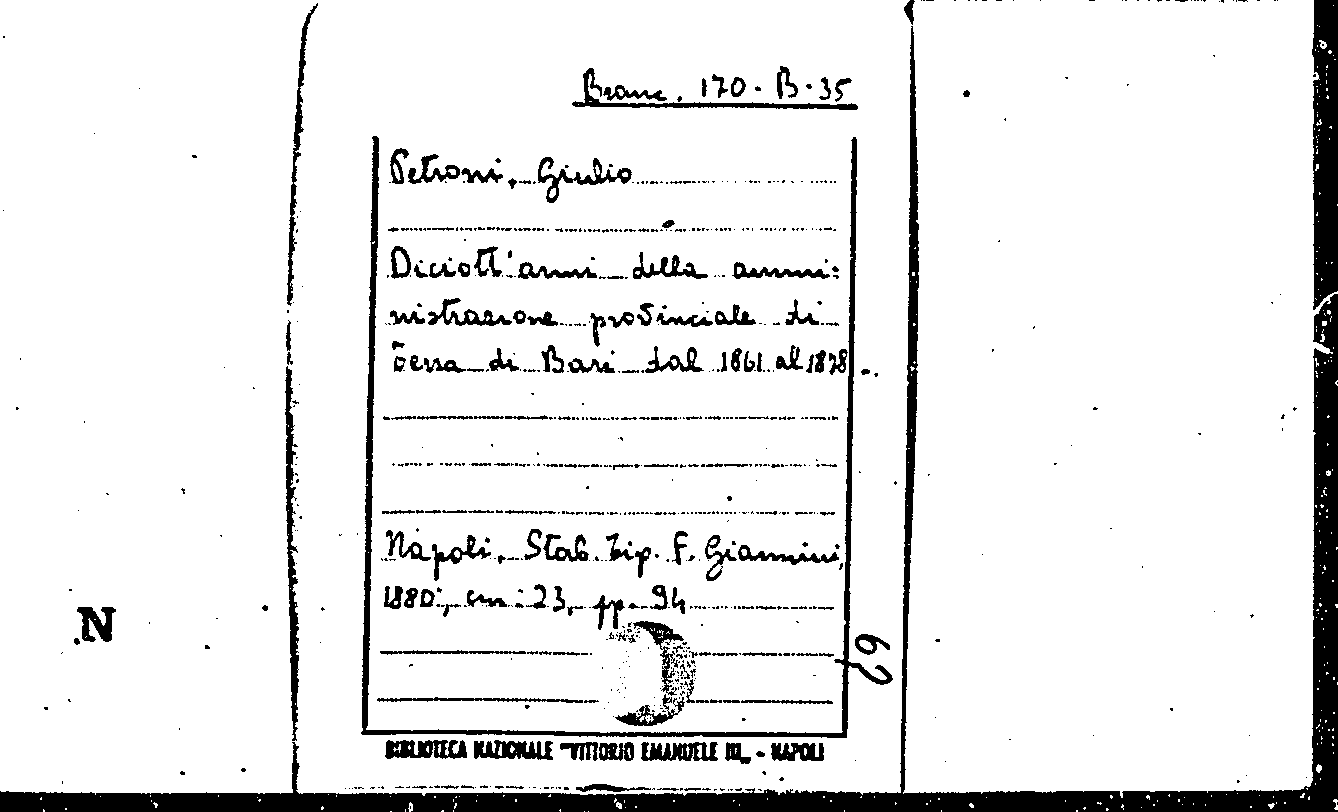 Branc. 170. B. 35
Petroni, Giulio
Diciott'anni della ammi:
nistrazione provinciale di
Terra di Bari dal 1861 al 1878
Napoli, Stab. Tip. F. Giannini,
1880, cm. 23, pp. 94
BIBLIOTECA NAZIONALE "VITTORIO EMANUELE III„ - NAPOLI
N